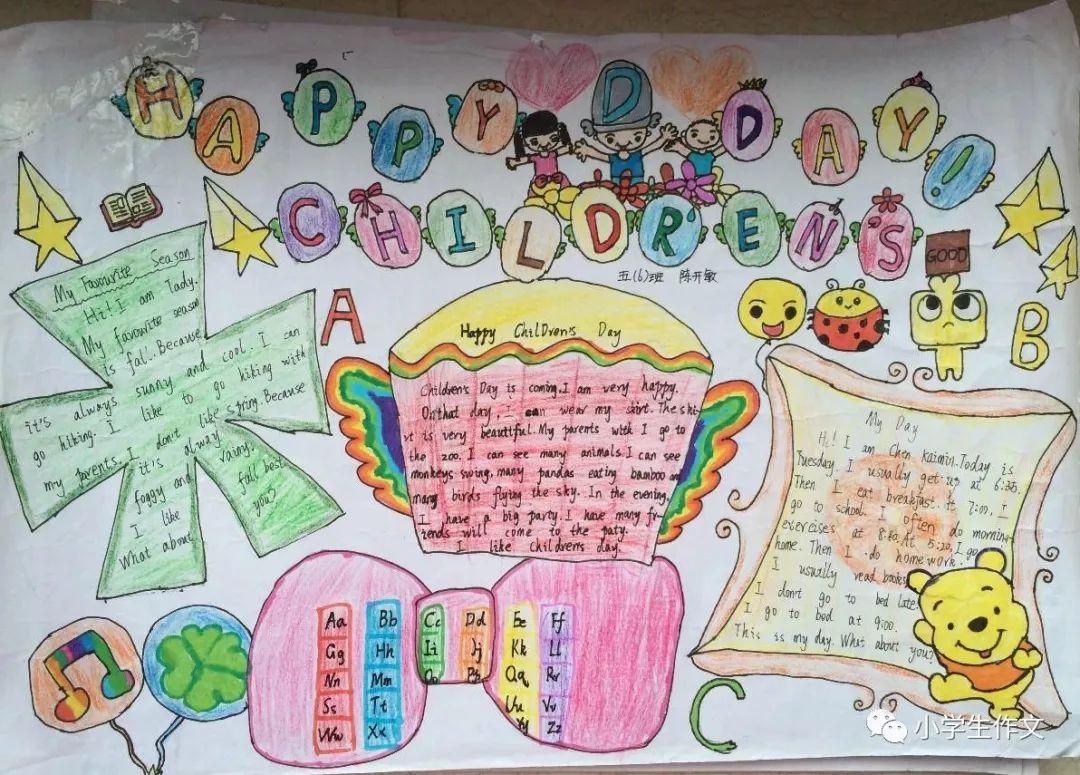 HAPPY DDAY!
CHILDREN'S
五(6)班 陈开敏
GOOD
A
B
C
My Favourite Season
Hi! I am Tady.
My favourite season
is fall..Because
it's always sunny and cool. I can
go hiking. I like to go hiking with
my parents. I don't like spring. Because
it's alway rainy.
foggy and fall best.
I like you?
What about
Happy ChilDren's Day
Children's Day is coming.I am very happy.
On that day, I can wear my skirt. The ski-
rt is very beauttful. My parents with I go to
the zoo. I can see many animals. I can see
monkeys swing, many pandas eating bamboo an
many birds flying the sky. In the evening,
I have a big party. I have many fr-
iends will come to the paty.
I like children's day.
My Day
Hi! I am Chen kaimin. Today is
Tuesday, I usually get up at 6:35.
Then I eat breakfast. It 7:00. I
go to school. I often do morning
exercises at At 5:20, I go
home. Then I do homework.
I usually read books
I don't go to bed late
I go to bed at 9:00.
This is my day. What about you?
Aa Bb Cc Dd Ee Ff
Gg Hh Ii Jj Kk Ll
Nn Mm Oo Pp Qq Rr
Ss Tt Uu Vv
Ww Xx Yy Zz
小学生作文